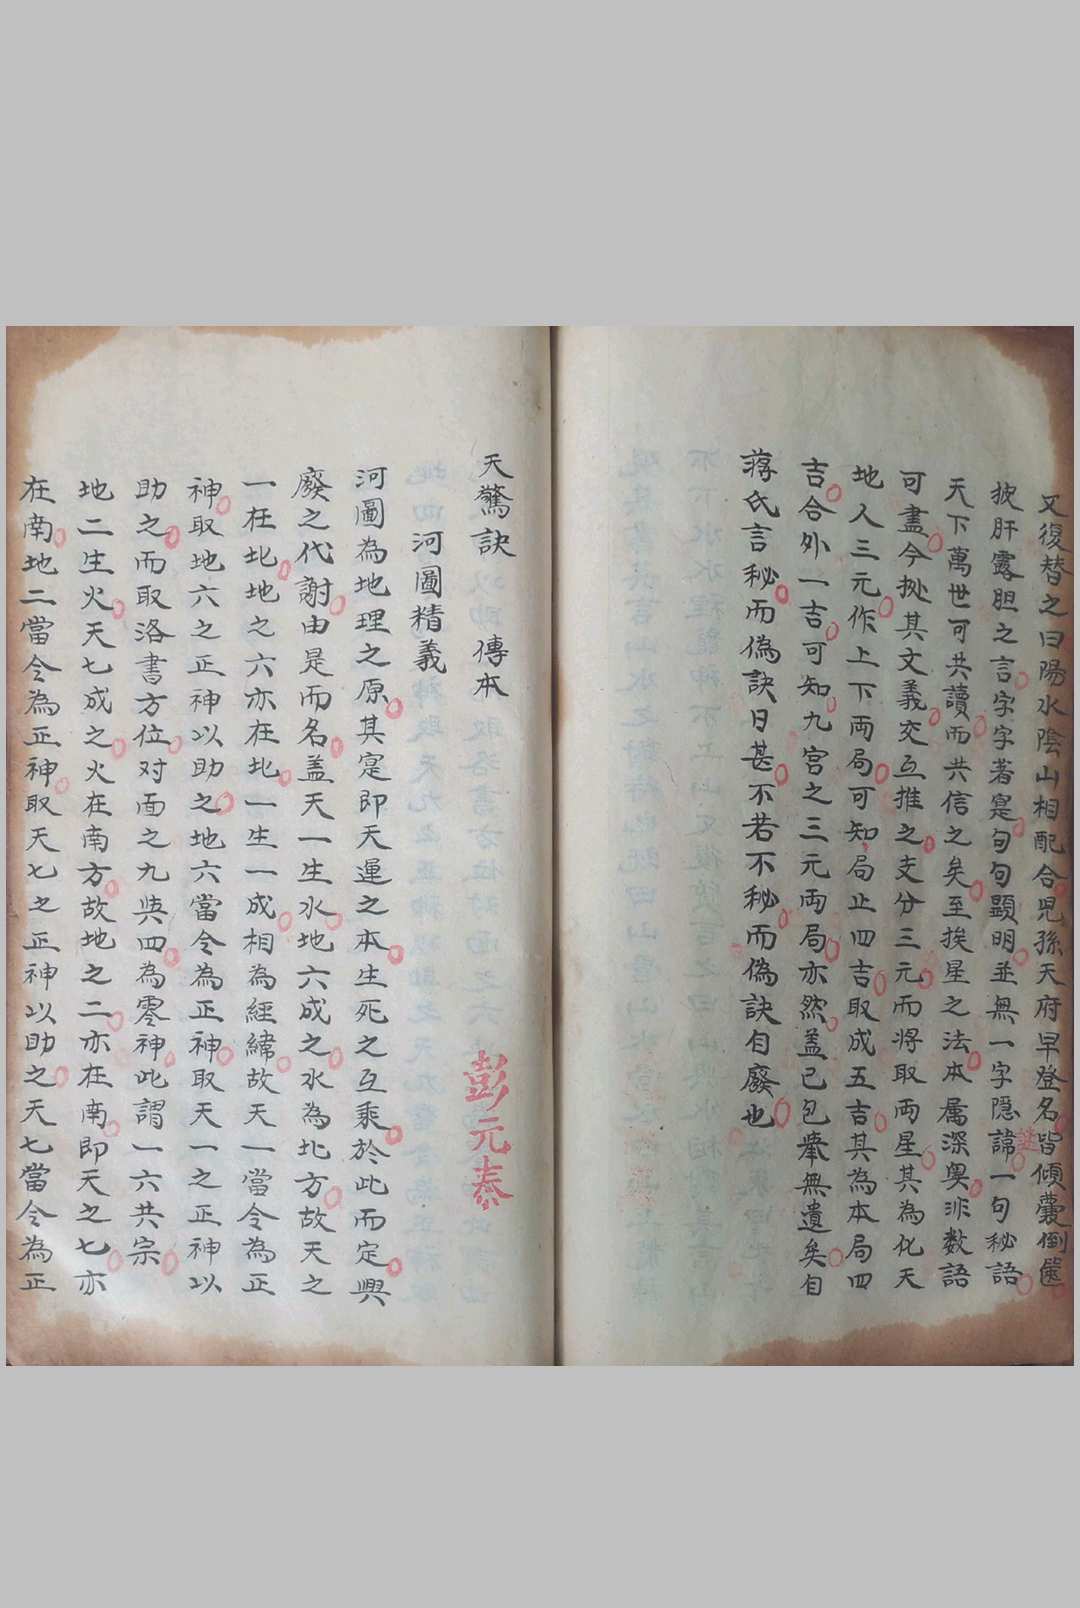 又復替之曰陽水陰山相配合児孫天府早登名皆傾囊倒篋
披肝露胆之言字字著寔句句顕明並無一字隠謎一句秘語
天下萬世可共讀而共信之矣至挨星之法本属深奥非数語
可盡今挍其文義交互推之支分三元而将取両星其為化天
地人三元作上下両局可知局止四吉取成五吉其為本局四
吉合外一吉可知九宫之三元両局亦然盖已包舉無遺矣自
蒋氏言秘而偽訣日甚不若不秘而偽訣自廢也
天驚訣 傳本 彭元泰
河圖精義
河圖為地理之原其寔即天運之本生死之互乘於此而定興
廢之代謝由是而名盖天一生水地六成之水為北方故天之
一在北地之六亦在北一生一成相為經緯故天一當令為正
神取地六之正神以助之地六當令為正神取天一之正神以
助之而取洛書方位对面之九與四為零神此謂一六共宗
地二生火天七成之火在南方故地之二亦在南即天之七亦
在南地二當令為正神取天七之正神以助之天七當令為正